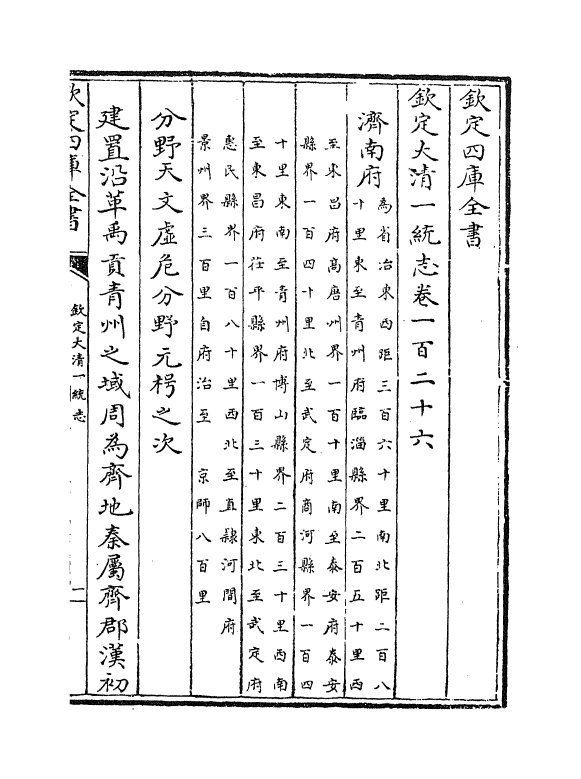 欽定四庫全書
欽定大清一統志卷一百二十六
濟南府
為省治東西距三百六十里南北距二百八
十里東至青州府臨淄縣界二百五十里西
至東昌府高唐州界一百十里南至泰安府泰安
縣界一百四十里北至武定府商河縣界一百四
十里東南至青州府博山縣界二百三十里西南
至東昌府茌平縣界一百三十里東北至武定府
惠民縣界一百八十里西北至直隸河間府
景州界三百里自府治至 京師八百里
分野天文虛危分野元枵之次
建置沿革禹貢青州之域周為齊地秦屬齊郡漢初
欽定四庫全書
欽定大清一統志